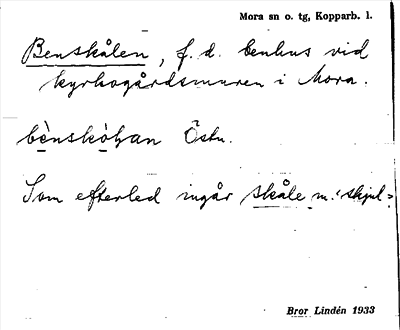 Mora sn o. tg, Kopparb. l.
Benskålen, f. d. benhus vid
kyrkogårdsmuren i Mora.
bènskòłan Östn.
Som efterled ingår skåle m. 'skjul'.
Bror Lindén 1933